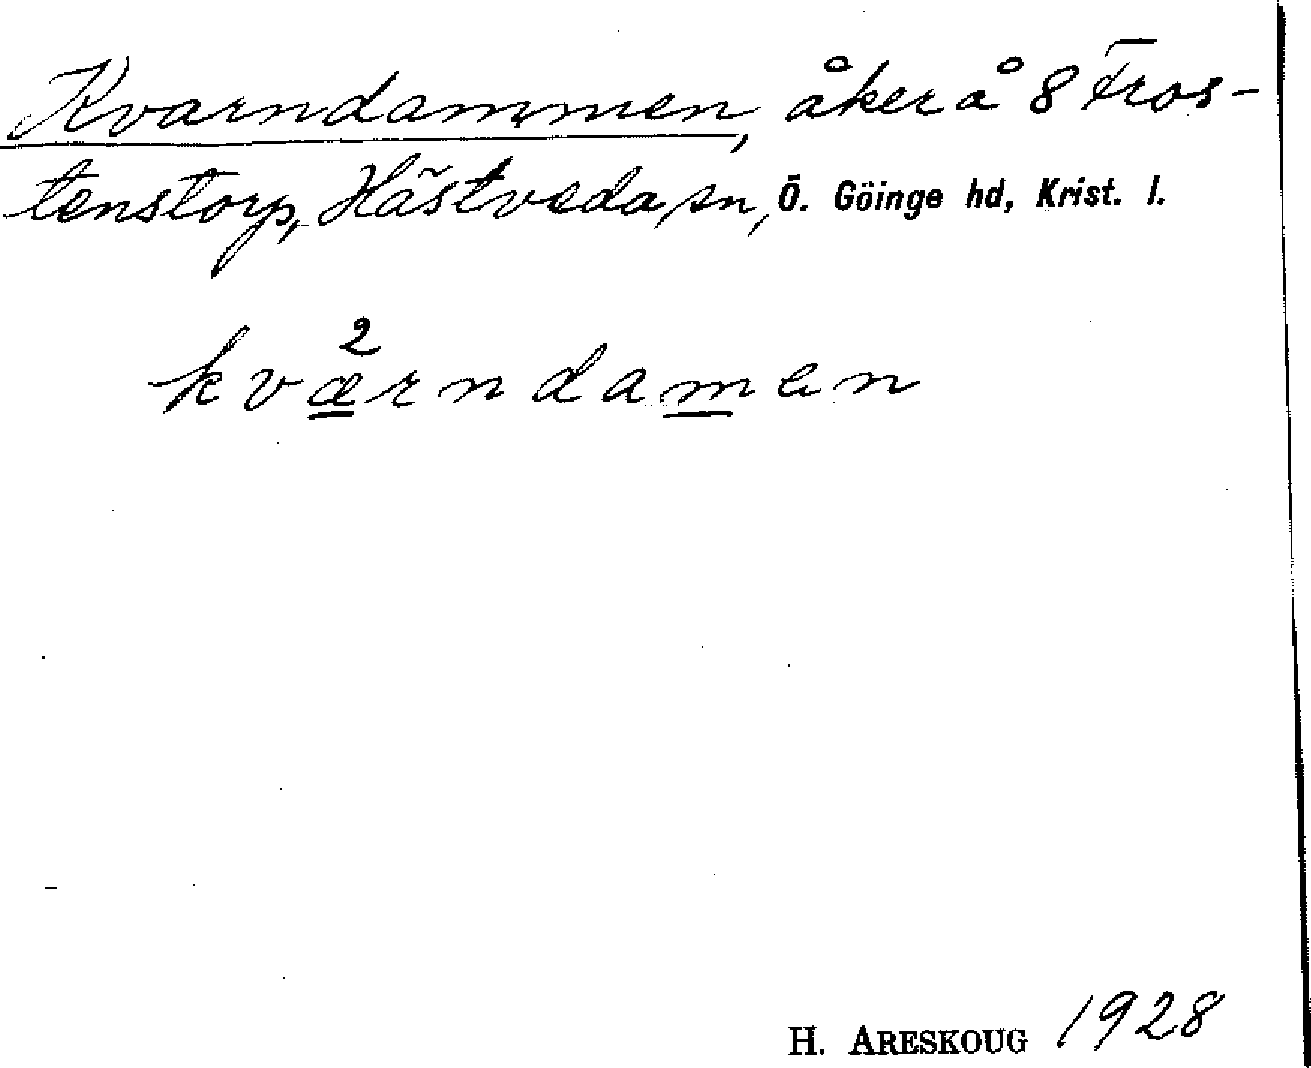 Kvarndammen, åker å 8 Fros-
tenstorp, Hästveda sn, Ö. Göinge hd, Krist. l.
2
kværndamen
H. ARESKOUG 1928